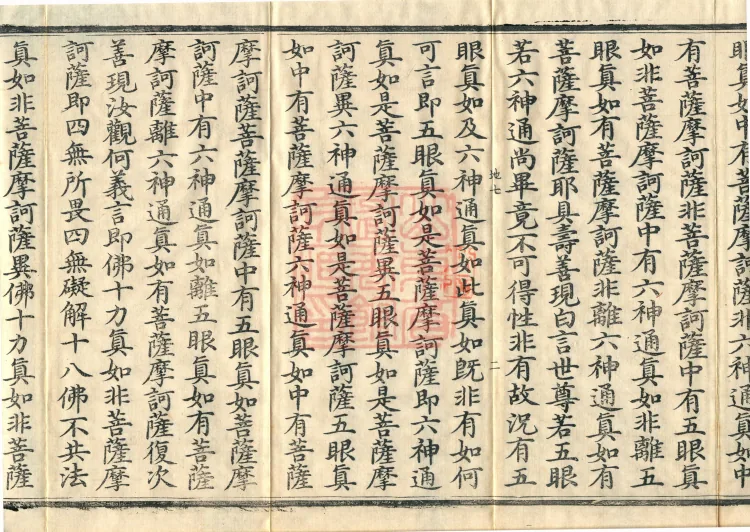 眼眞如中有菩薩摩訶薩非六神通眞如中
有菩薩摩訶薩非菩薩摩訶薩中有五眼眞
如非菩薩摩訶薩中有六神通眞如非離五
眼眞如有菩薩摩訶薩非離六神通眞如有
菩薩摩訶薩耶具壽善現白言世尊若五眼
若六神通尚畢竟不可得性非有故況有五
地七 二
眼眞如及六神通眞如此眞如旣非有如何
可言即五眼眞如是菩薩摩訶薩即六神通
眞如是菩薩摩訶薩異五眼眞如是菩薩摩
訶薩異六神通眞如是菩薩摩訶薩五眼眞
如中有菩薩摩訶薩六神通眞如中有菩薩
摩訶薩菩薩摩訶薩中有五眼眞如菩薩摩
訶薩中有六神通眞如離五眼眞如有菩薩
摩訶薩離六神通眞如有菩薩摩訶薩復次
善現汝觀何義言即佛十力眞如非菩薩摩
訶薩即四無所畏四無礙解十八佛不共法
眞如非菩薩摩訶薩異佛十力眞如非菩薩